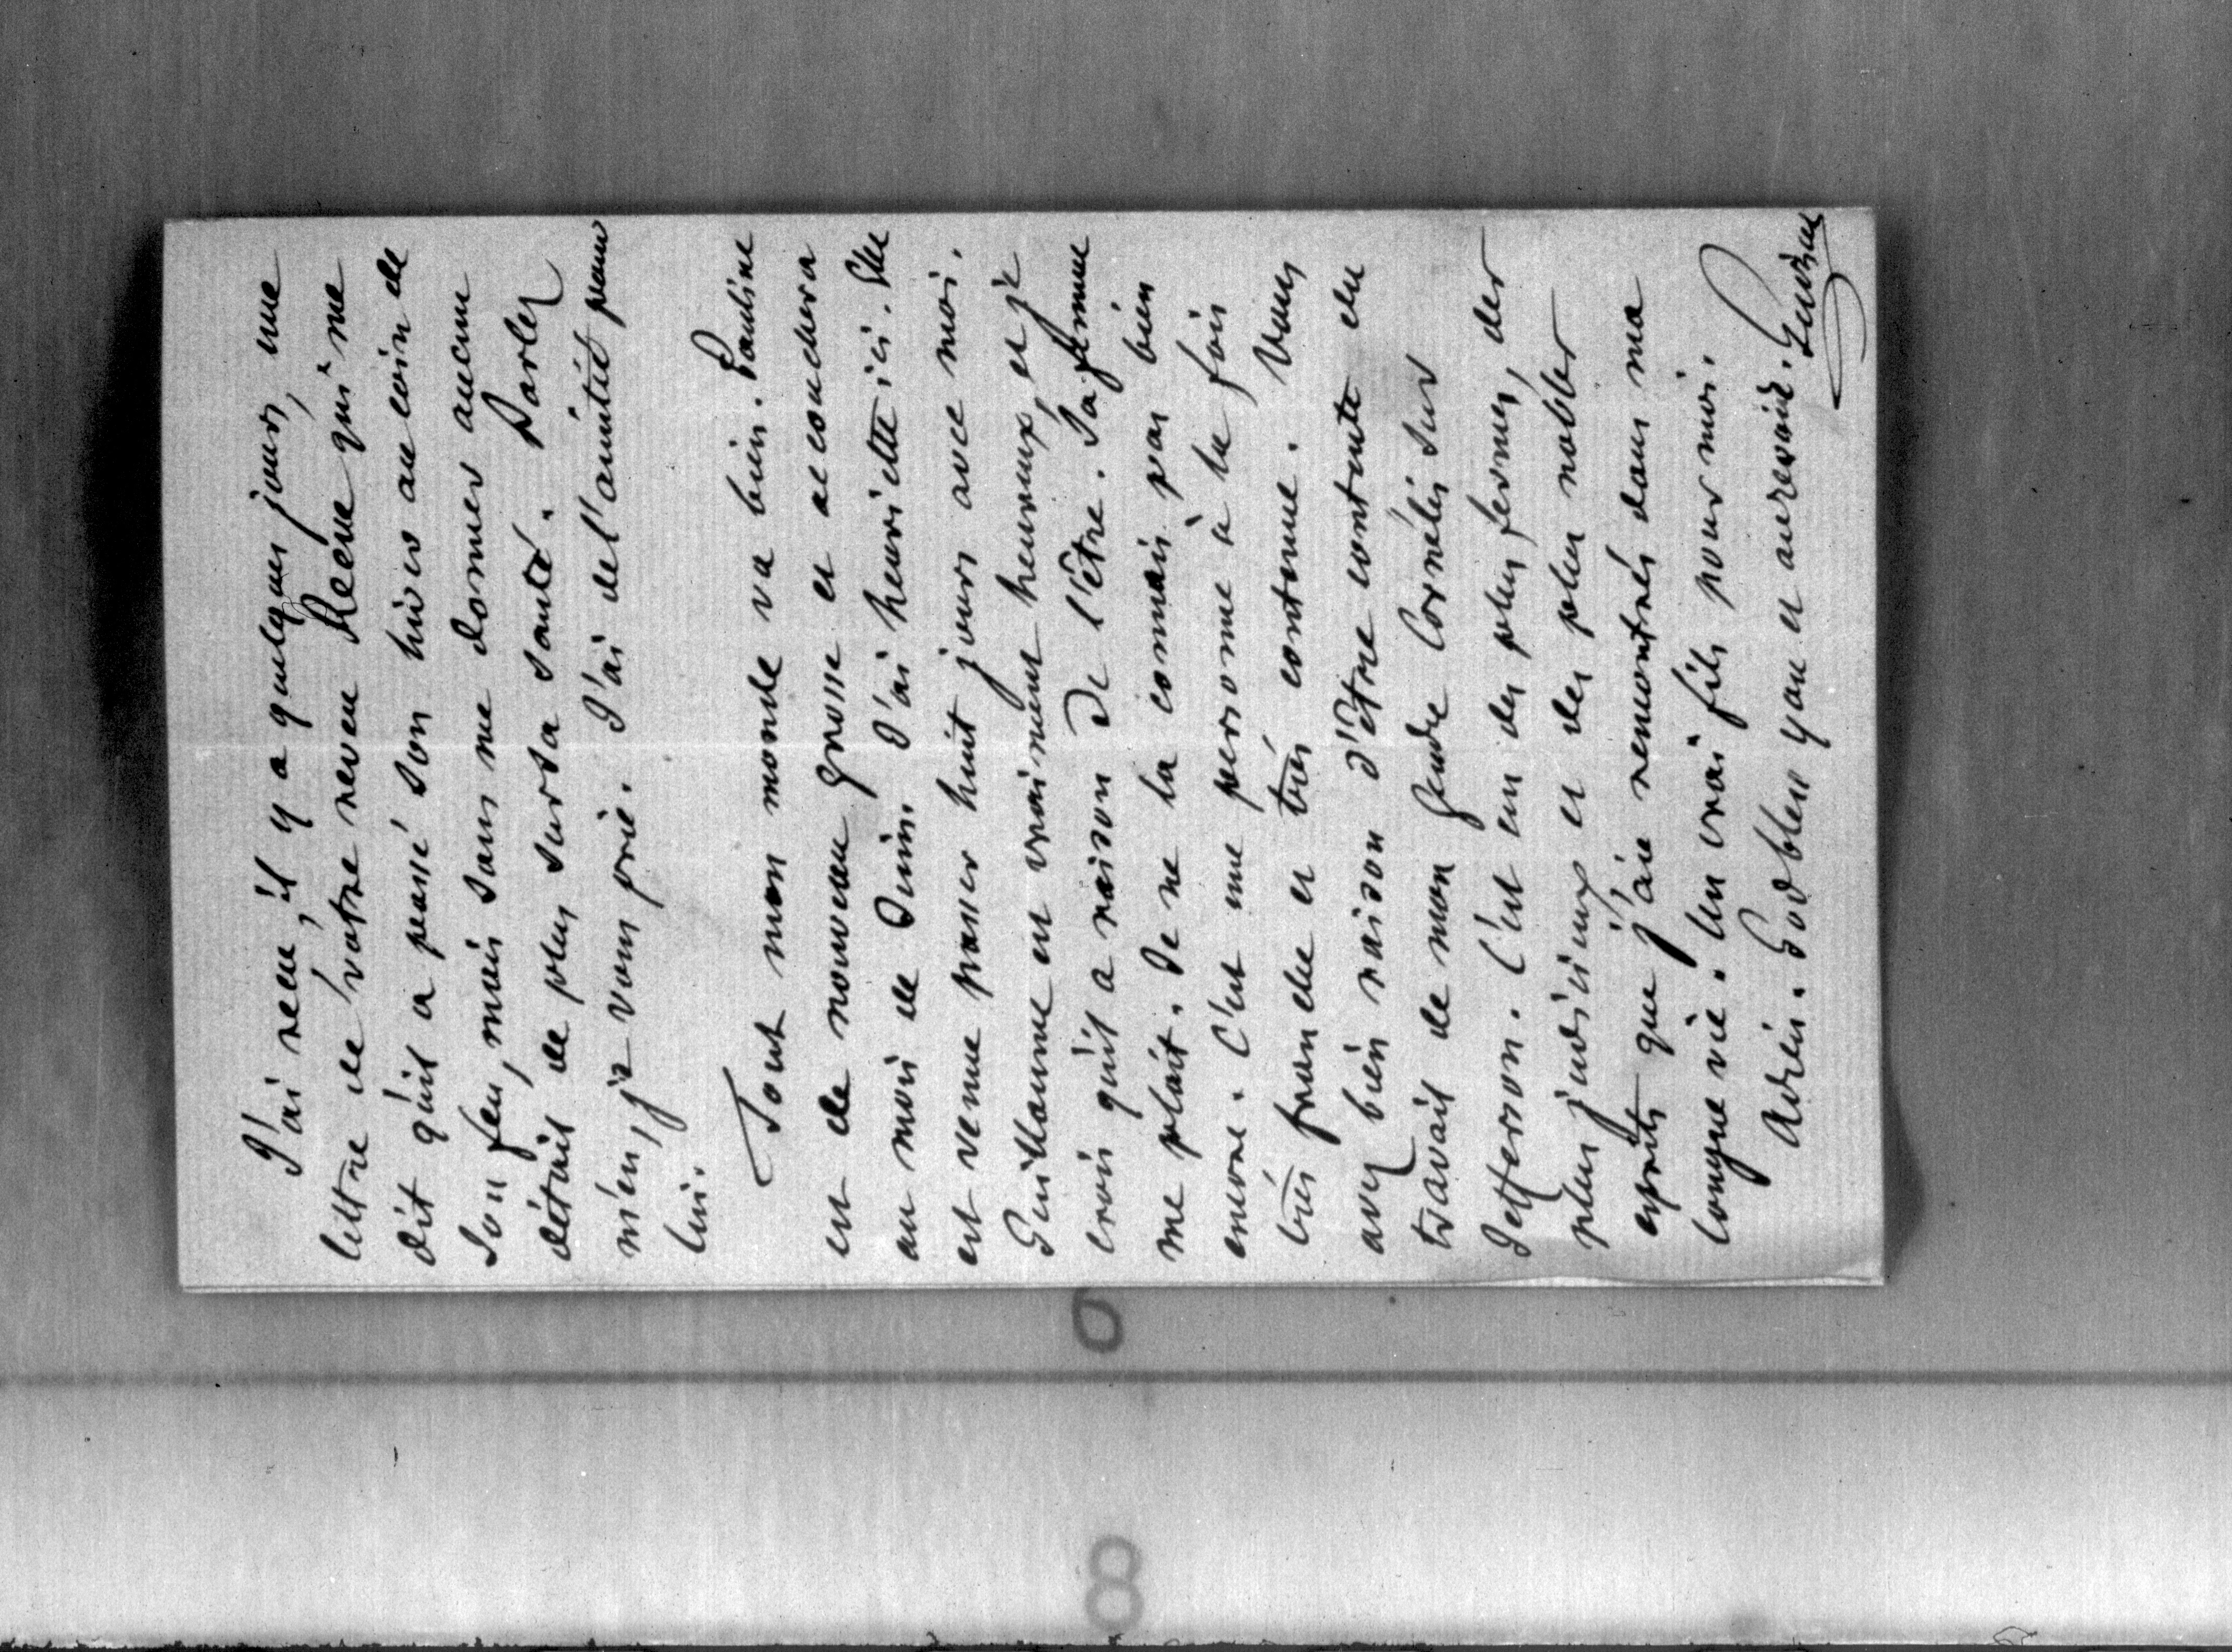 J'ai reçu, il y a quelques jours, une
lettre de votre neveu Reeve qui me
dit qu'il a passé son hiver au coin de
son feu, mais sans me donner aucun
détail de plus sur sa santé. Parlez
m'en, je vous prie. J'ai de l'amitié pour
lui.
Tout mon monde va bien. Pauline
est de nouveau grosse et accouchera
au mois de Juin. J'ai henriette ici. Elle
est venue passer huit jours avec moi.
Guillaume est vraiment heureux, et je
crois qu'il a raison de l'être. Sa femme
me plait. Je ne la connais pas bien
encore. C'est une personne à la fois
très franche et très contenue. Vous
avez bien raison d'être contente du
travail de mon gendre Cornélis sur
Jefferson. C'est un des plus fermes, des
plus judicieux et des plus nobles
esprits que j'aie rencontrés dans ma
longue vie. Un vrai fils pour moi.
Adieu. God bless you et au revoir. Guizot
6
8